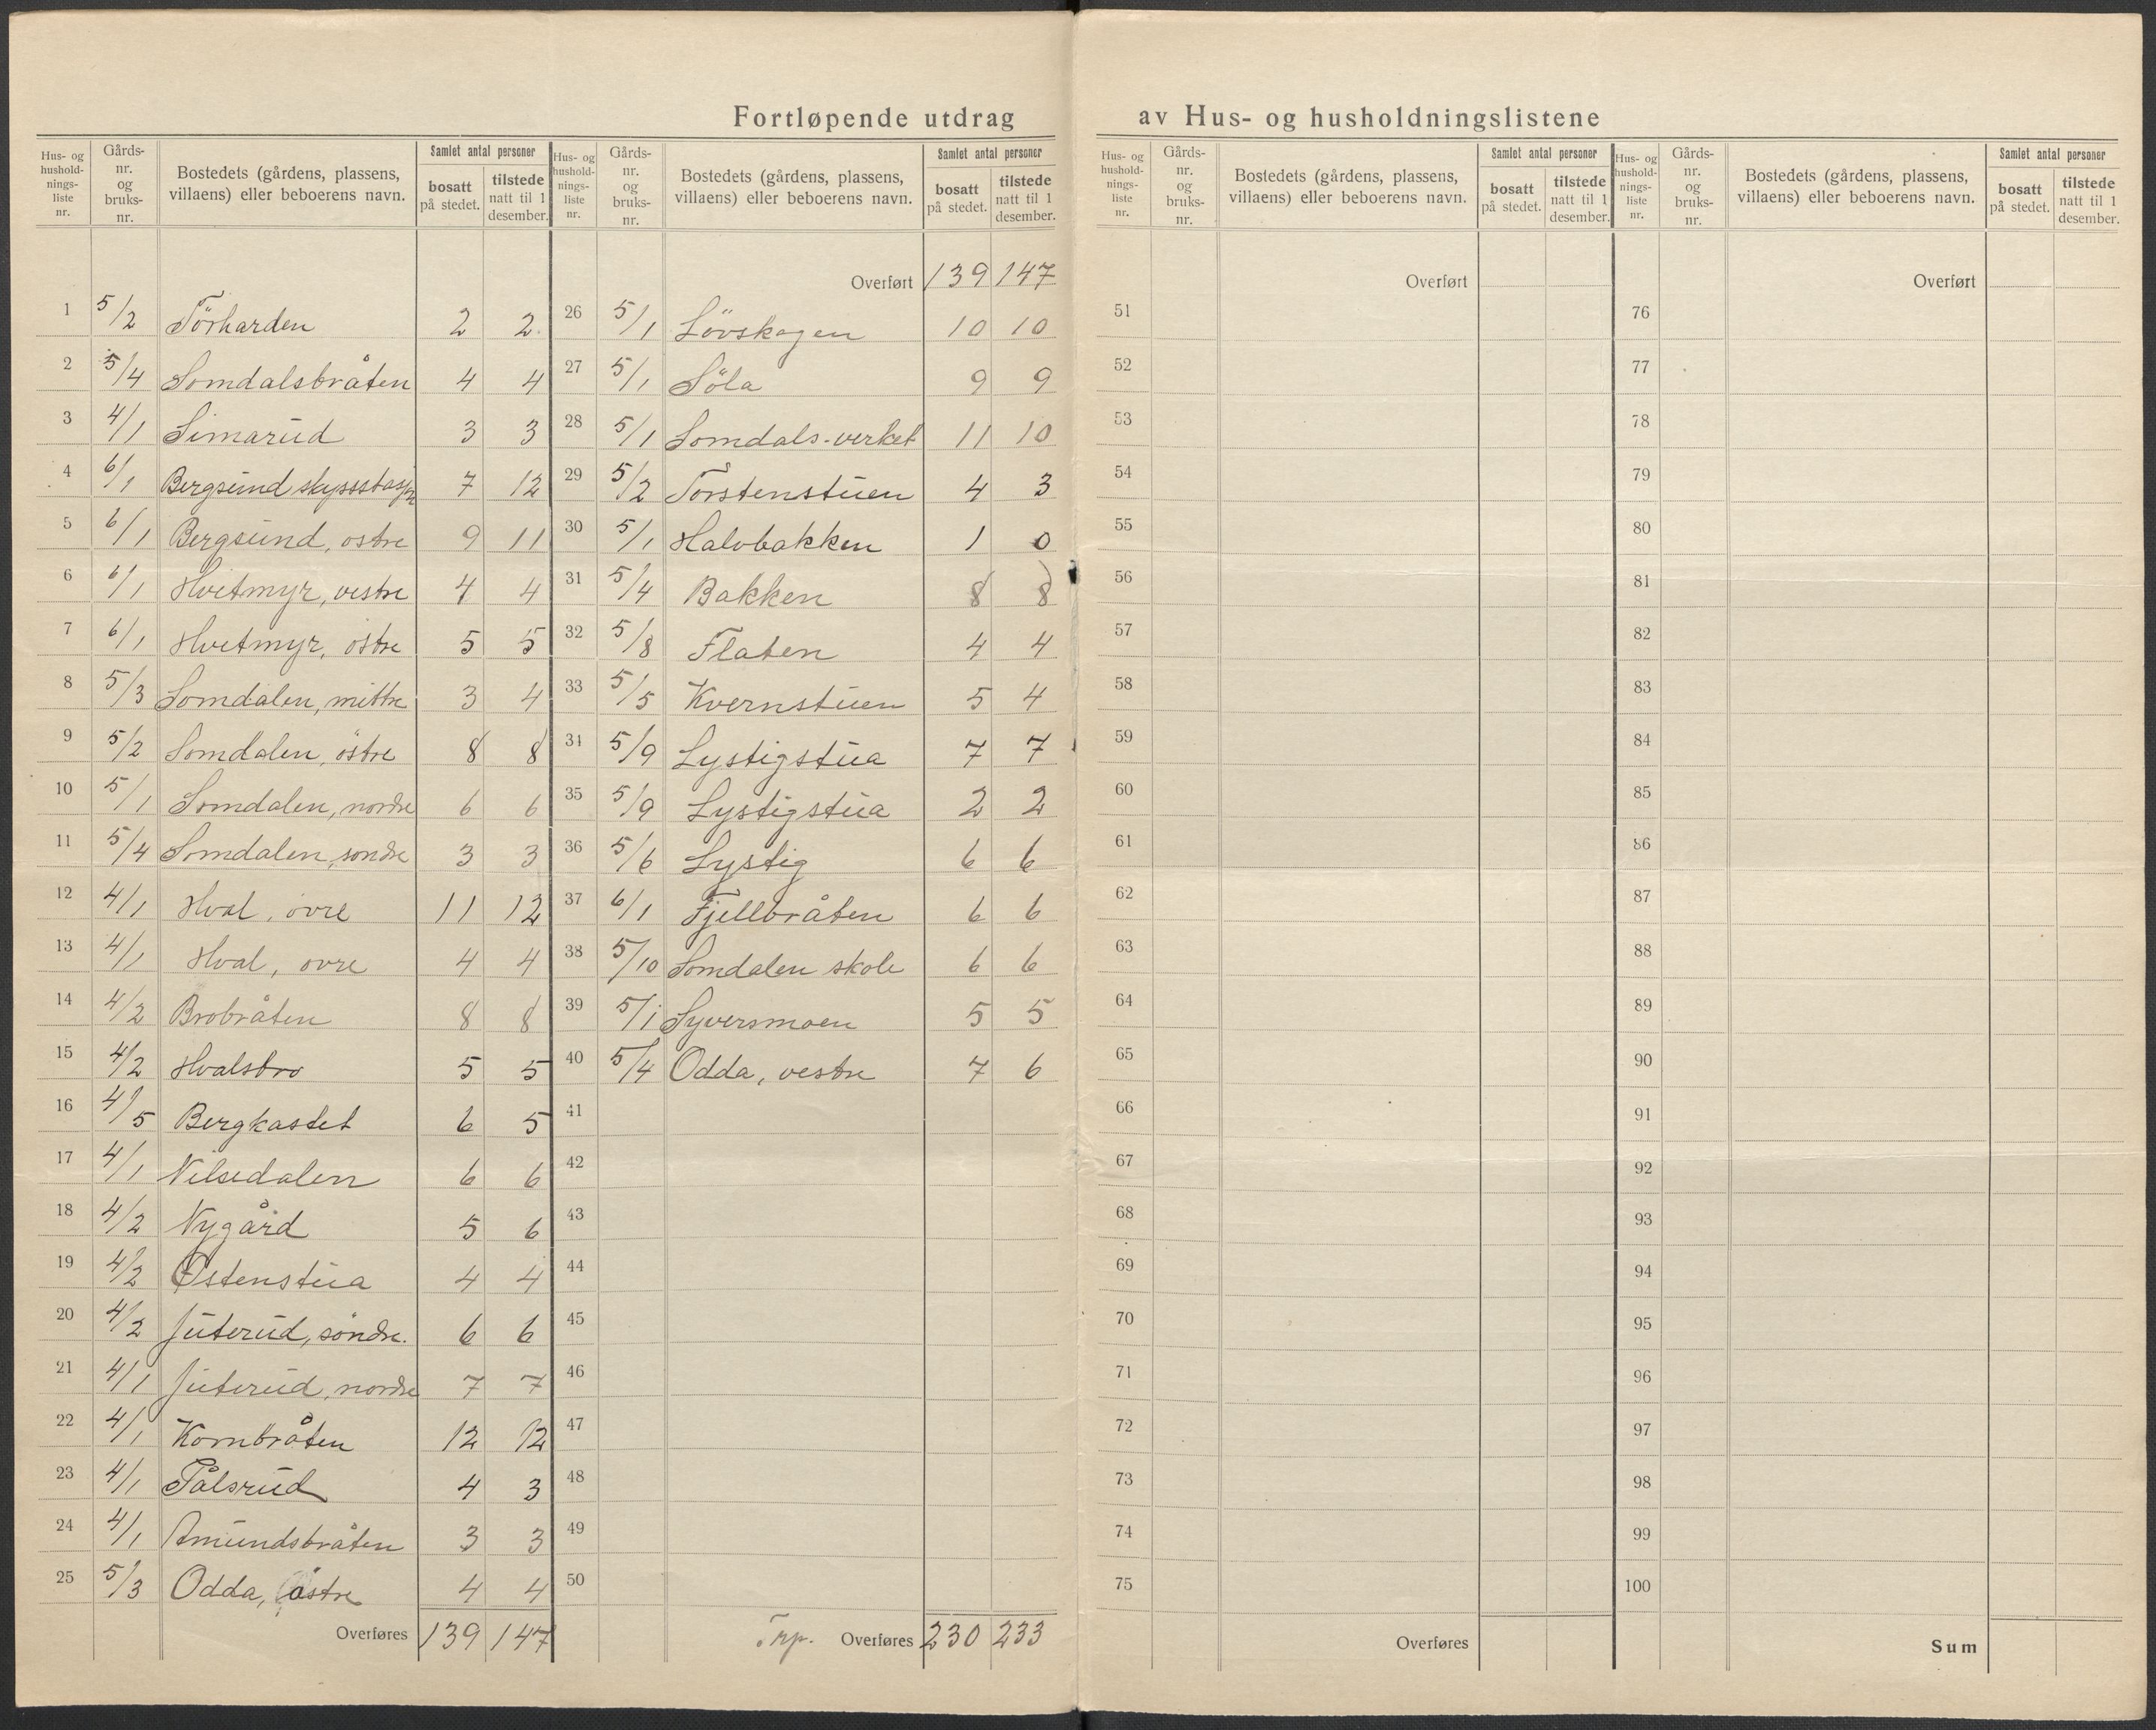 Fortløpende utdrag av Hus- og husholdningslistene
Hus- og hushold-nings-liste nr. | Gårds-nr. og bruks-nr. | Bostedets (gårdens, plassens, villaens) eller beboerens navn. | Samlet antal personer | bosatt på stedet. | tilstede natt til 1 desember.
1 5/2 Törharden 2 2
2 5/4 Somdalsbråten 4 4
3 4/1 Simarud 3 3
4 6/1 Bergsund skysstasjon 7 12
5 6/1 Bergsund, östre 9 11
6 6/1 Hvitmyr, vestre 4 4
7 6/1 Hvitmyr, östre 5 5
8 5/3 Somdalen, mittre 3 4
9 5/2 Somdalen, östre 8 8
10 5/1 Somdalen, nordre 6 6
11 5/4 Somdalen, söndre 3 3
12 4/1 Hval, övre 11 12
13 4/1 Hval, övre 4 4
14 4/2 Brobråten 8 8
15 4/2 Hvalsbro 5 5
16 4/5 Bergkastet 6 5
17 4/1 Nilsedalen 6 6
18 4/2 Nygård 5 6
19 4/2 Østenstua 4 4
20 4/2 Juterud, söndre. 6 6
21 4/1 Juterud, nordre 7 7
22 4/1 Kornbråten 12 12
23 4/1 Pålsrud 4 3
24 4/1 Amundsbråten 3 3
25 5/3 Odda, östre 4 4
Overføres 139 147
Hus- og hushold-nings-liste nr. | Gårds-nr. og bruks-nr. | Bostedets (gårdens, plassens, villaens) eller beboerens navn. | Samlet antal personer | bosatt på stedet. | tilstede natt til 1 desember.
Overført 139 147
26 5/1 Lövskogen 10 10
27 5/1 Söla 9 9
28 5/1 Somdals-verket 11 10
29 5/2 Torstenstuen 4 3
30 5/1 Halvbakken 1 0
31 5/4 Bakken 8 8
32 5/8 Flaten 4 4
33 5/5 Kvernstuen 5 4
34 5/9 Lystigstua 7 7
35 5/9 Lystigstua 2 2
36 5/6 Lystig 6 6
37 6/1 Fjellbråten 6 6
38 5/10 Somdalen skole 6 6
39 5/1 Syversmoen 5 5
40 5/4 Odda, vestre 7 6
41
42
43
44
45
46
47
48
49
50
Trp. Overføres 230 233
Hus- og hushold-nings-liste nr. | Gårds-nr. og bruks-nr. | Bostedets (gårdens, plassens, villaens) eller beboerens navn. | Samlet antal personer | bosatt på stedet. | tilstede natt til 1 desember.
Overført
51
52
53
54
55
56
57
58
59
60
61
62
63
64
65
66
67
68
69
70
71
72
73
74
75
Overføres
Hus- og hushold-nings-liste nr. | Gårds-nr. og bruks-nr. | Bostedets (gårdens, plassens, villaens) eller beboerens navn. | Samlet antal personer | bosatt på stedet. | tilstede natt til 1 desember.
Overført
76
77
78
79
80
81
82
83
84
85
86
87
88
89
90
91
92
93
94
95
96
97
98
99
100
Sum